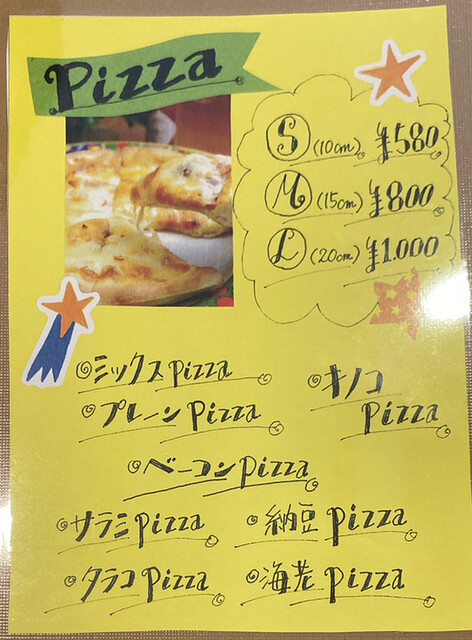 Pizza
Ⓢ(10cm) ¥580
Ⓜ(15cm) ¥800
Ⓛ(20cm) ¥1.000
◎ミックスpizza
◎キノコ
pizza
◎プレーンpizza
◎ベーコンpizza
◎サラミpizza
◎納豆pizza
◎タラコpizza
◎海老pizza